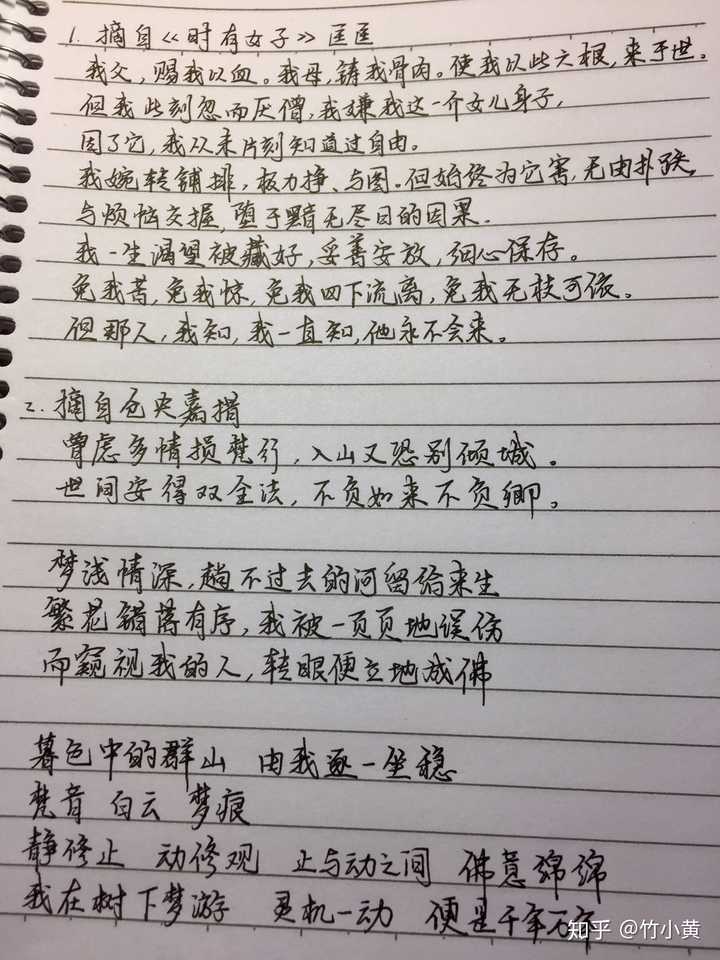 1. 摘自《时有女子》匡匡
我父，赐我以血。我母，铸我骨肉。使我以此六根，来于世。
但我此刻忽而厌憎，我嫌我这一介女儿身子，
因了它，我从未片刻知道过自由。
我婉转铺排，极力挣、与图。但始终为它害，无由扑跌。
与烦恼交握，堕于黯无尽日的因果.
我一生渴望被藏好，妥善安放，细心保存。
免我苦，免我惊，免我四下流离，免我无枝可依。
但那人，我知，我一直知，他永不会来。
2. 摘自仓央嘉措
曾虑多情损梵行，入山又恐别倾城。
世间安得双全法，不负如来不负卿。
梦浅情深，趟不过去的河留给来生
繁花错落有序，我被一页页地误伤
而窥视我的人，转眼便立地成佛
暮色中的群山 由我逐一坐稳
梵音 白云 梦痕
静修止 动修观 止与动之间 佛意绵绵
我在树下梦游 灵机一动 便是千年万年
知乎 @竹小黄